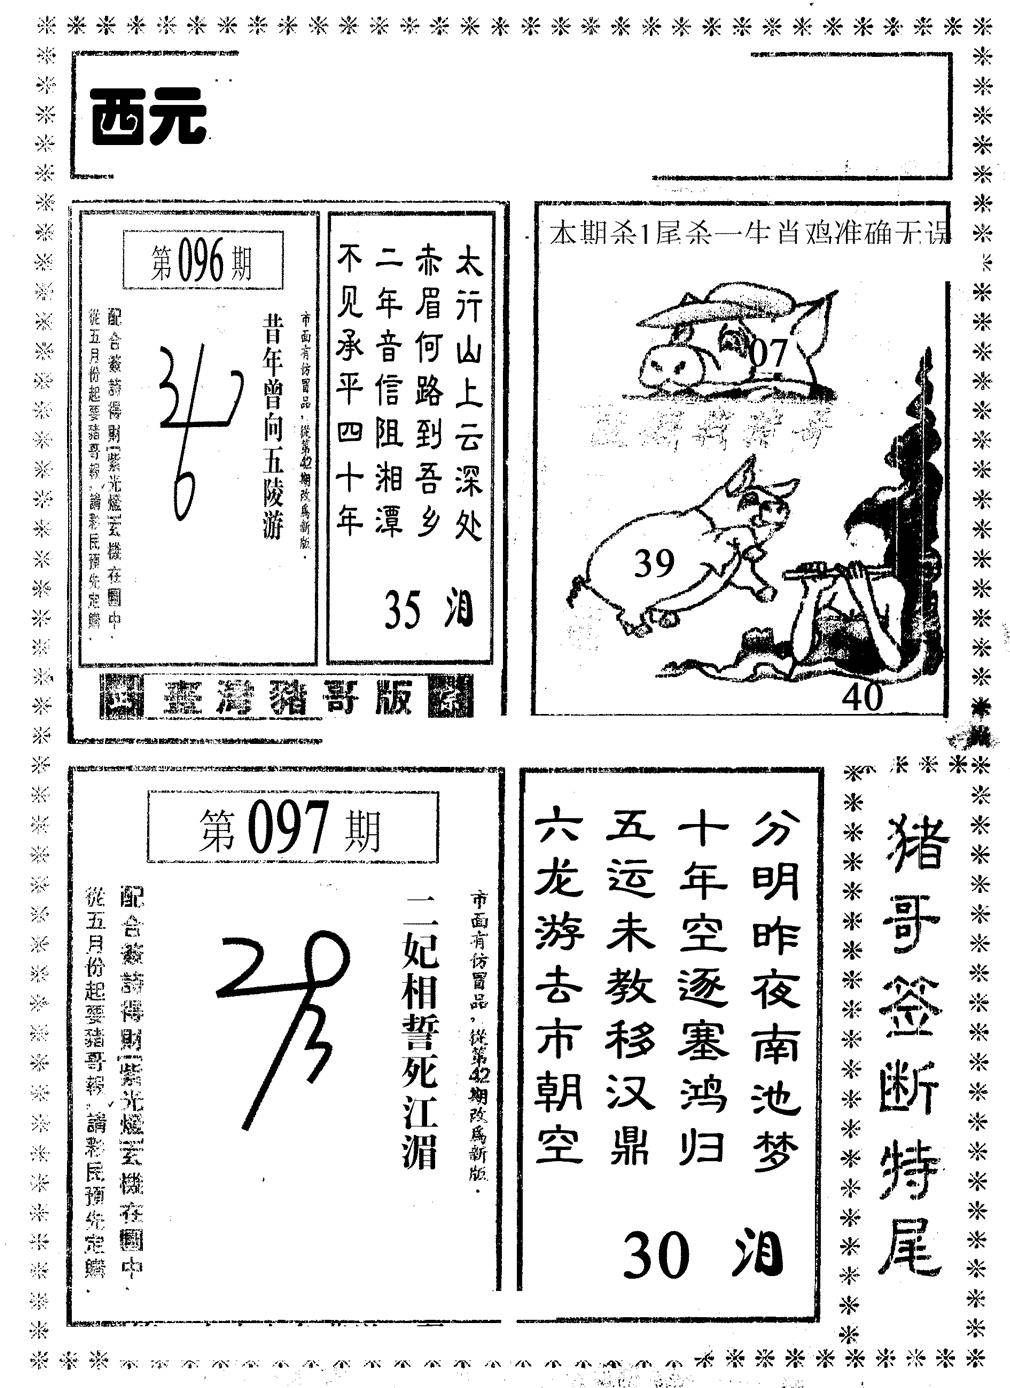 西元
第096期
太行山上云深处
赤眉何路到吾乡
二年音信阻湘潭
不见承平四十年
35 泪
市面有仿冒品,從第42期改爲新版.
昔年曾向五陵游
配合簽詩得財(紫光燈)玄機在圖中.
從五月份起要豬哥報,請彩民預先定購.
臺灣豬哥版
本期杀1尾杀一生肖鸡准确无误
07
39
40
第097期
市面有仿冒品,從第42期改爲新版.
二妃相誓死江湄
配合簽詩得財(紫光燈)玄機在圖中.
從五月份起要豬哥報,請彩民預先定購.
分明昨夜南池梦
十年空逐塞鸿归
五运未教移汉鼎
六龙游去市朝空
30 泪
猪哥签断特尾